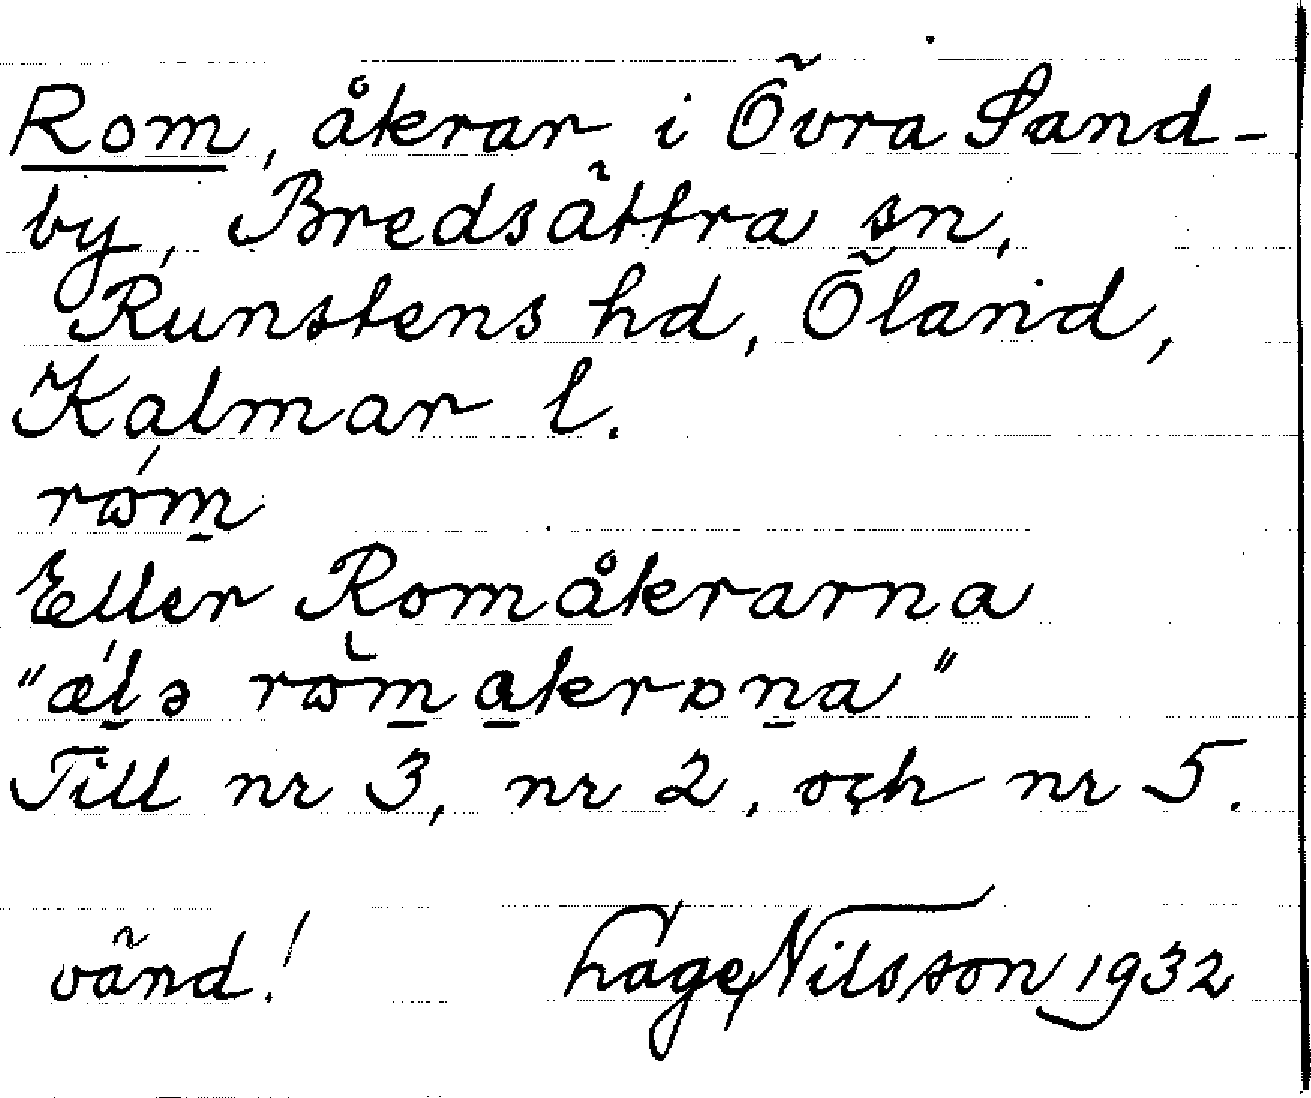 Rom, åkrar i Övra Sand-
by, Bredsättra sn,
Runstens hd, Öland,
Kalmar l.
Eller Romåkrarna
Till nr 3, nr 2, och nr 5.
vänd! Nilsson 1932